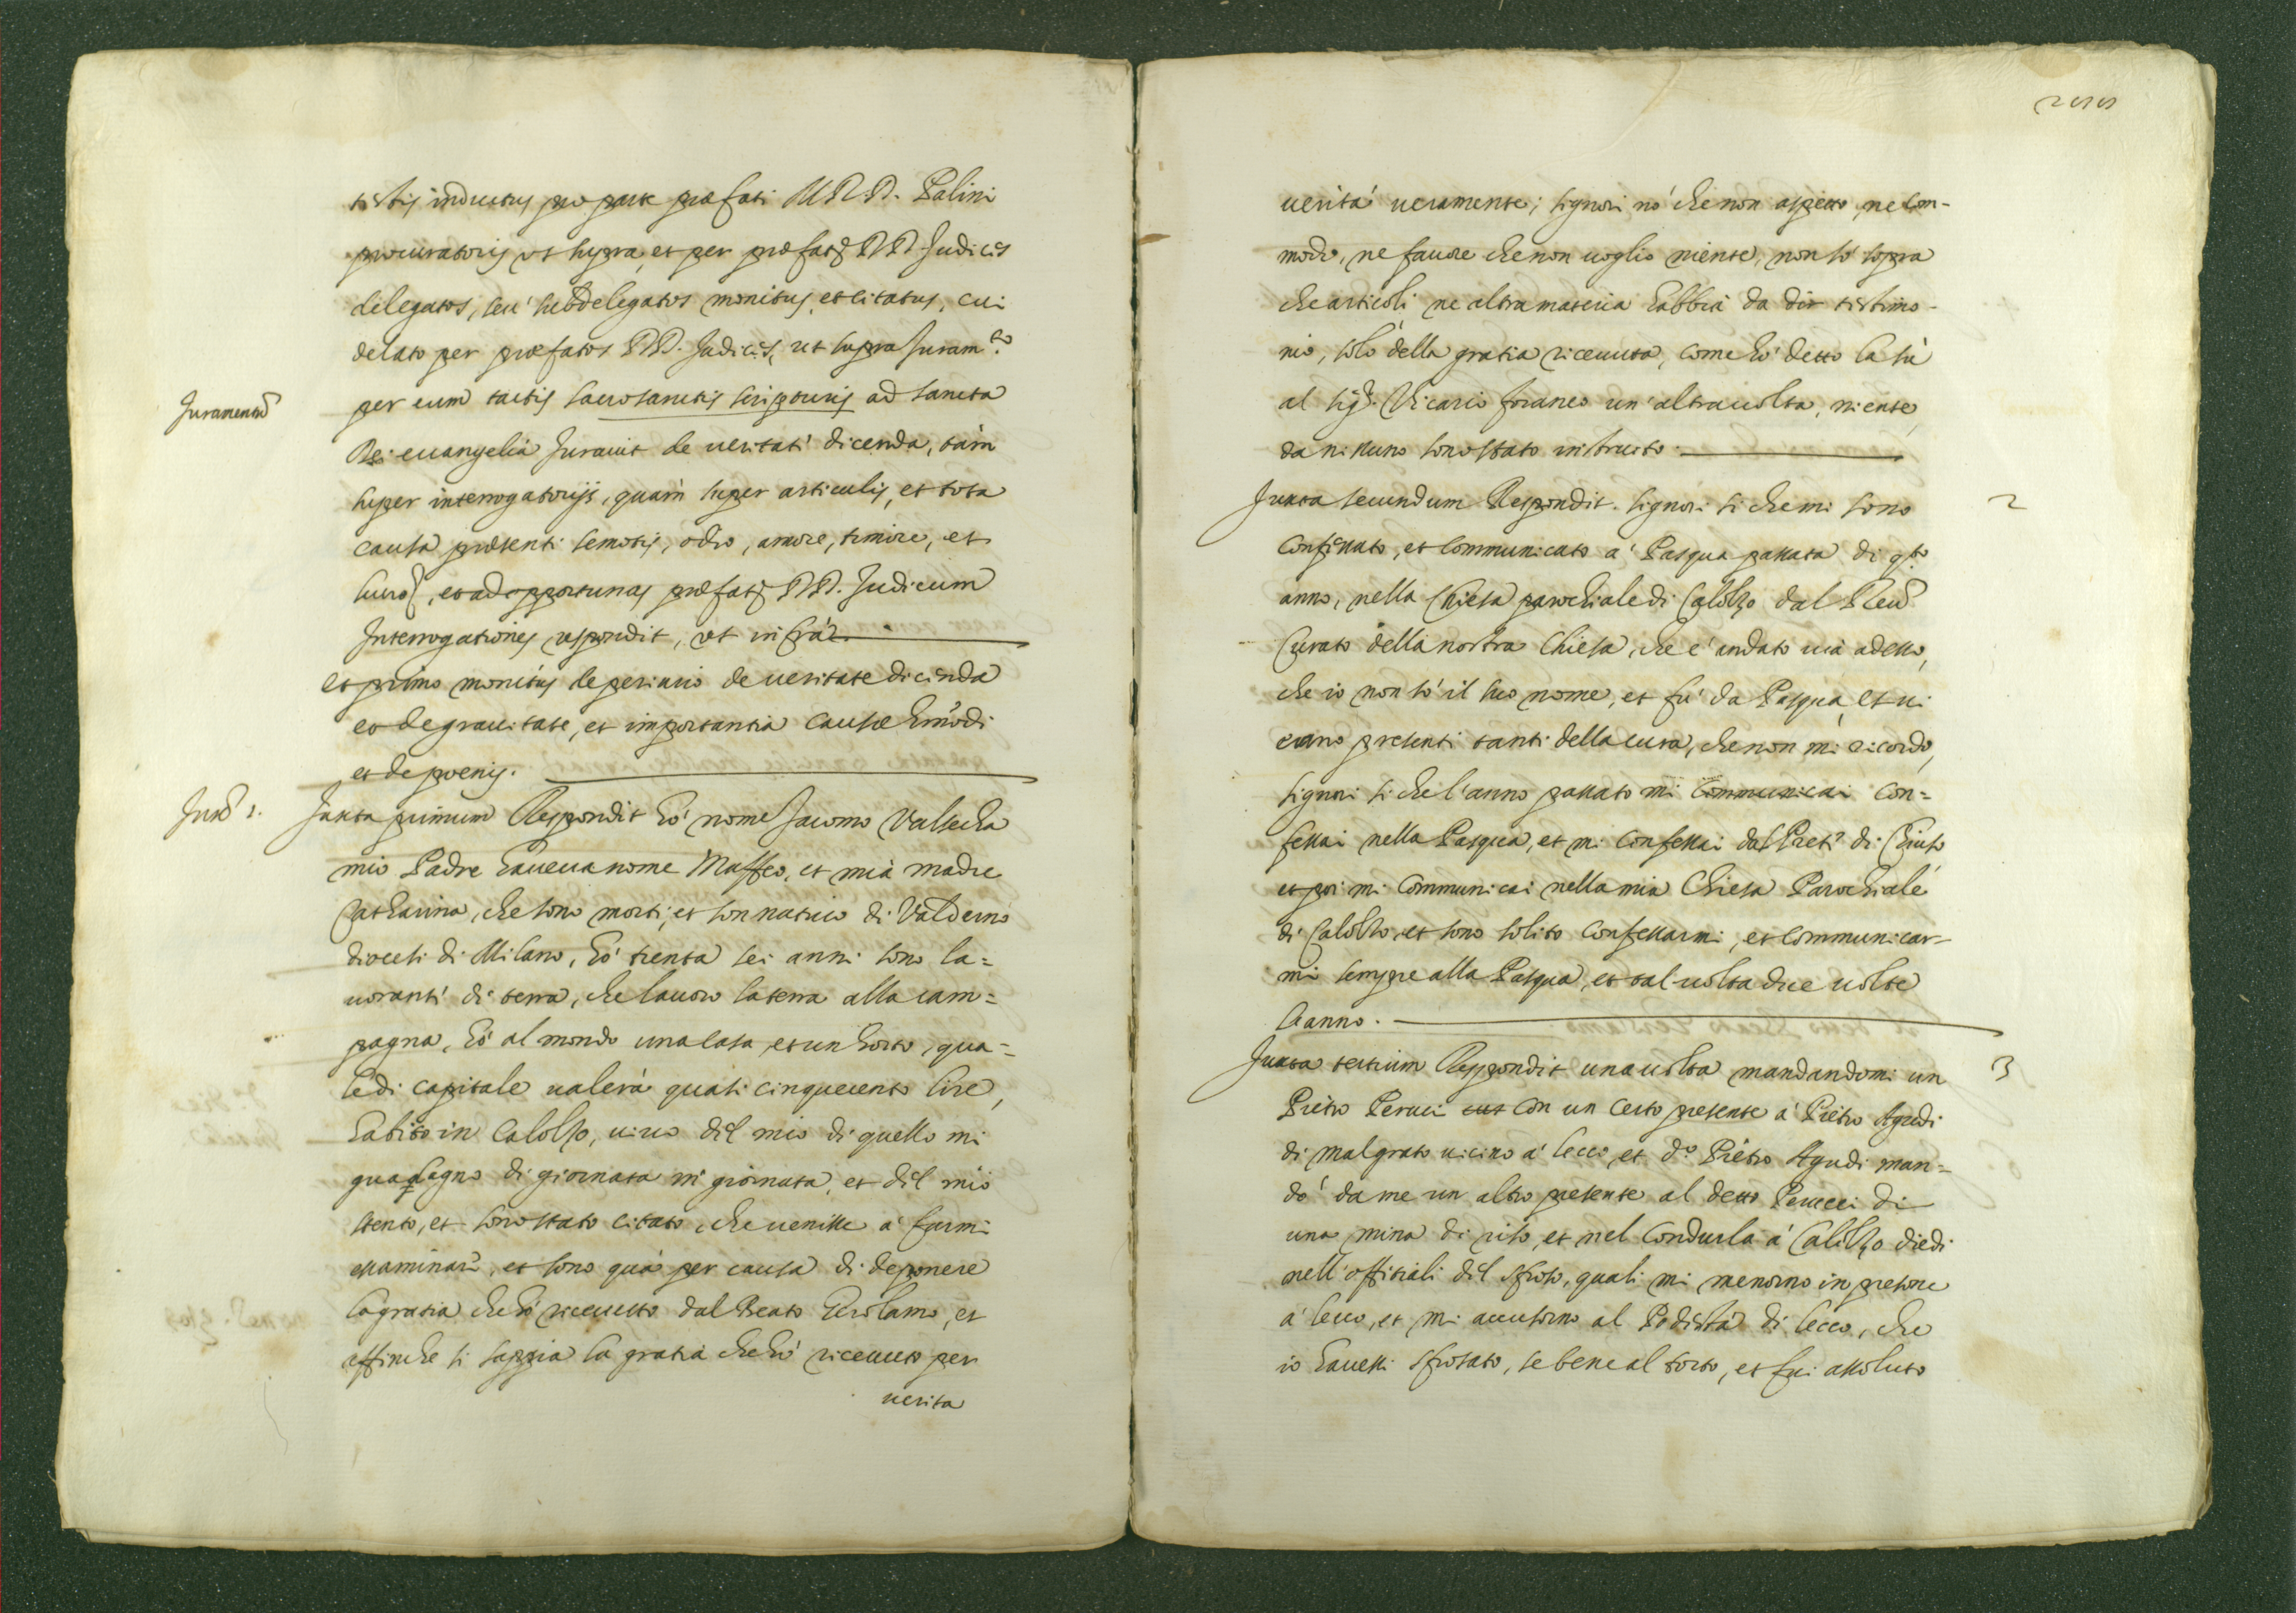 testis inductus pro parte præfati M.R.D. Palini
procuratoris ut supra, et per præfatos DD. Judices
delegatos, seu subdelegatos monitus, et citatus, cui
delato per præfatos DD. Judices, ut supra Juram.to
Juramentũ
per eum tactis sacrosanctis scripturis ad sancta
Dei euangelia Jurauit de ueritati dicenda, tàm
super interrogatorijs, quàm super articulis, et tota
causa præsenti semotis, odio, amore, timore, et
et ad opportunas præfatoȝ DD. Judicum
Interrogationes respondit, ut infrà
et primo monitus de periurio de ueritate dicenda
et de grauitate, et importantia causæ hmõdi
et de poenis.
Juxta primum Respondit hò nome Jacomo Valsecha
mio Padre haueua nome Maffeo, et mia madre
Catharina, che sono morti, et son natiuo di Valderuo
diocesi di Milano, hò trenta sei anni sono la=
uoranti di terra, che lauoro la terra alla cam=
pagna, hò al mondo una casa, et un horto, qua=
le di capitale ualerà quasi cinquecento lire,
habito in Calolzo, uiuo del mio di quello mi
guadagno di giornata in giornata, et del mio
stento, et sono stato citato, che uenisse à farmi
essaminare, et sono quà per causa di deponere
la gratia che hò riceuuto dal Beato Girolamo, et
affinche si sappia la gratia che hò riceuuto per
uerita
uerità ueramente; signori nò che non aspetto, ne com-
modo, ne fauore che non uoglio niente, non sò sopra
che articoli, ne altra materia habbia da dir testimo-
nio, solo della gratia riceuuta, come hò detto là sù
al sig.r Vicario foraneo un'altra uolta, niente,
da nissuno sono stato instrutto.
Juxta secundum Respondit. signori si che mi sono 2
confessato, et communicato à Pasqua passata di q.to
anno, nella Chiesa parochiale di Calolzo dal Reu.
Curato della nostra Chiesa, che è andato uia adesso,
che io non sò il suo nome, et fù da Pasqua, et ui
erano presenti tanti della cura, che non mi ricordo,
signori si che l'anno passato mi communicai con=
fessai nella Pasqua, et mi confessai dal Preti di Chiuso,
et poi mi communicai nella mia Chiesa Parochiale
di Calolzo, et sono solito confessarmi, et communicar-
mi sempre alla Pasqua, et tal uolta due uolte
l'anno.
Juxta tertium Respondit una uolta mandandomi un 3
Pietro Peruci con un certo presente à Pietro Agudi
di malgrato uicino à lecco, et d.o Pietro Agudi man=
dò da me un altro presente al detto Perucci di
una mina di riso, et nel condurla à Calolzo diedi
nell'offitiali del sfroso, quali mi menorno in pregione
à lecco, et mi accusorno al Podestà di lecco, che
io hauessi sfrosato, se bene al torto, et fui assoluto